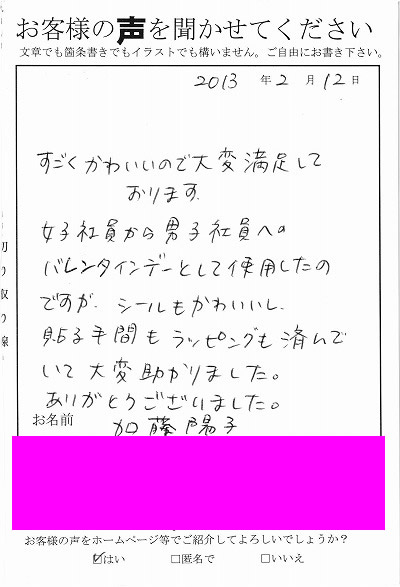 お客様の声を聞かせてください
文章でも箇条書きでもイラストでも構いません。ご自由にお書き下さい。
2013年2月12日
すごくかわいいので大変満足して
おります
女子社員から男子社員への
バレンタインデーとして使用したの
ですが、シールもかわいいし、
貼る手間もラッピングも済んで
いて大変助かりました。
ありがとうございました。
切り取り線
お名前
加藤陽子
お客様の声をホームページ等でご紹介してよろしいでしょうか?
☑はい □匿名で □いいえ